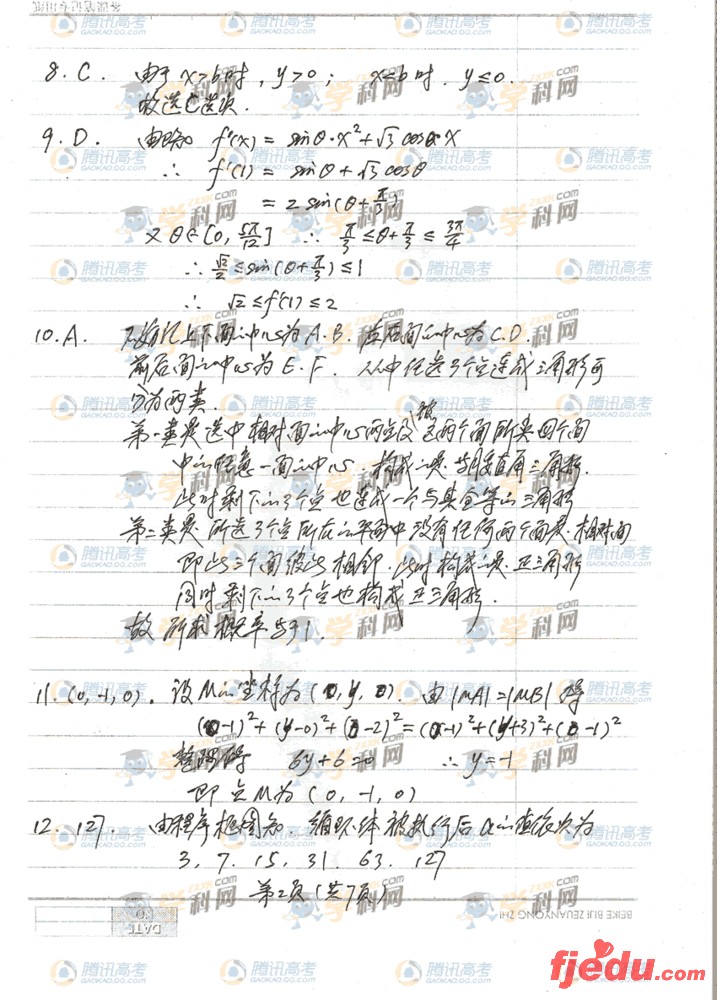 8. C. 由于 x>b时, y>0; x<b时. y≤0.
故选C选项.
9. D. 由题知 f'(x) = sinθ·x²+√3 cosθ·x
∴ f'(1) = sinθ+√3 cosθ
= 2 sin(θ+π/3)
又 θ∈[0, 5π/12] ∴ π/3≤θ+π/3≤3π/4
∴ √2/2≤sin(θ+π/3)≤1
∴ √2≤f'(1)≤2
10. A. 上下面的中心为A.B. 左右面的中心为C.D.
前后面的中心为E.F. 从中任选3个点连成三角形可
分为两类.
第一类是选中相对面的中心两点及被这两个面所夹四个面
中的任意一面的中心. 构成的是等腰直角三角形.
此时剩下的3个点也连成一个与其全等的三角形
第二类是所选3个点所在的平面中没有任何两个面是相对面
即此三个面彼此相邻. 此时构成的是正三角形
同时剩下的3个点也构成正三角形.
故所求概率等于1.
11. (0,-1,0). 设M的坐标为(0,y,0). 由|MA|=|MB|得
(0-1)²+(y-0)²+(0-2)²=(0-1)²+(y+3)²+(0-1)²
整理得 6y+6=0 ∴ y=-1
即点M为(0,-1,0)
12. 127. 由程序框图知. 循环体被执行后a的值依次为
3. 7. 15. 31. 63. 127
第2页(共7页)
BEIKE BIJI ZHUANYONG ZHI
DATE
NO.
腾讯高考
GAOKAO.QQ.COM
学科网
ZXXK.com
fjedu.com